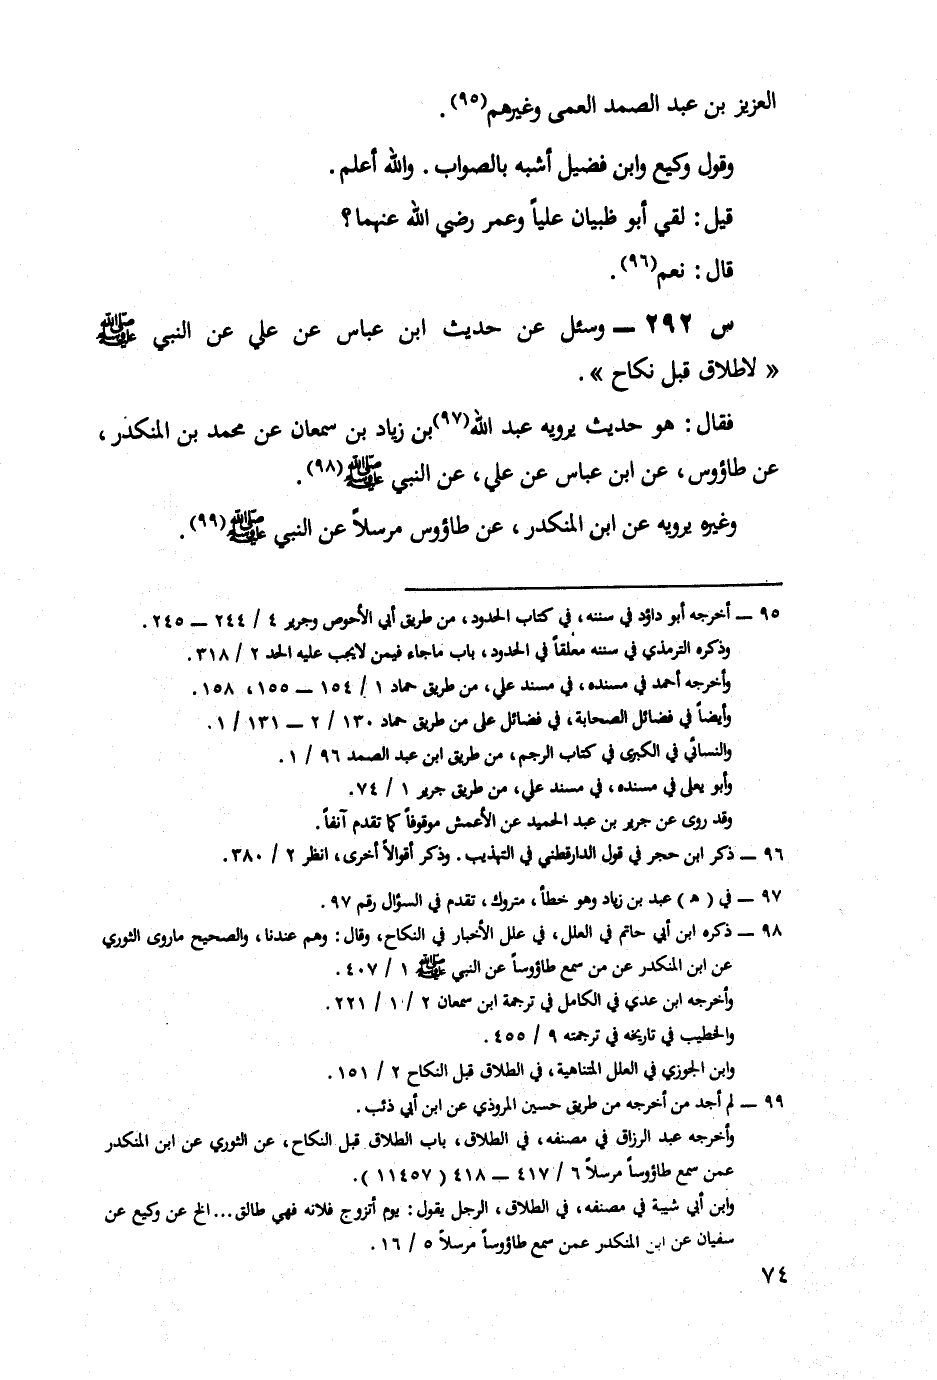 العزيز بن عبد الصمد العمى وغيرهم(٩٥) .
وقول وكيع وابن فضيل أشبه بالصواب . والله أعلم .
قيل : لقي أبو ظبيان علياً وعمر رضي الله عنهما؟
قال : نعم(٩٦) .
س ٢٩٢ ــ وسئل عن حديث ابن عباس عن علي عن النبي ﷺ
« لاطلاق قبل نكاح » .
فقال : هو حديث يرويه عبد الله(٩٧)بن زياد بن سمعان عن محمد بن المنكدر ،
عن طاؤوس ، عن ابن عباس عن علي ، عن النبي ﷺ(٩٨) .
وغيره يرويه عن ابن المنكدر ، عن طاؤوس مرسلاً عن النبي ﷺ(٩٩) .
٩٥ ــ أخرجه أبو داؤد في سننه، في كتاب الحدود، من طريق أبي الأحوص وجرير ٤ / ٢٤٤ ــ ٢٤٥ .
وذكره الترمذي في سننه معلقاً في الحدود ، باب ماجاء فيمن لايجب عليه الحد ٢ / ٣١٨ .
وأخرجه أحمد في مسنده، في مسند علي، من طريق حماد ١ / ١٥٤ ــ ١٥٥، ١٥٨ .
وأيضاً في فضائل الصحابة، في فضائل على من طريق حماد ١٣٠ / ٢ ــ ١٣١ / ١ .
والنسائي في الكبرى في كتاب الرجم، من طريق ابن عبد الصمد ٩٦ / ١ .
وأبو يعلى في مسنده، في مسند علي، من طريق جرير ١ / ٧٤.
وقد روى عن جرير بن عبد الحميد عن الأعمش موقوفاً كما تقدم آنفاً .
٩٦ ــ ذكر ابن حجر في قول الدارقطني في التهذيب . وذكر أقوالاً أخرى، انظر ٢ / ٣٨٠ .
٩٧ ــ في ( ه ) عبد بن زياد وهو خطأ ، متروك، تقدم في السؤال رقم ٩٧ .
٩٨ ــ ذكره ابن أبي حاتم في العلل، في علل الأخبار في النكاح، وقال : وهم عندنا، والصحيح ماروى الثوري
عن ابن المنكدر عن من سمع طاؤوساً عن النبي ﷺ ١ / ٤٠٧ .
وأخرجه ابن عدي في الكامل في ترجمة ابن سمعان ٢ / ١ / ٢٢١ .
والخطيب في تاريخه في ترجمته ٩ / ٤٥٥ .
وابن الجوزي في العلل المتناهية، في الطلاق قبل النكاح ٢ / ١٥١ .
٩٩ ــ لم أجد من أخرجه من طريق حسين المروذي عن ابن أبي ذئب .
وأخرجه عبد الرزاق في مصنفه، في الطلاق، باب الطلاق قبل النكاح، عن الثوري عن ابن المنكدر
عمن سمع طاؤوساً مرسلاً ٦ / ٤١٧ ــ ٤١٨ ( ١١٤٥٧ ).
وابن أبي شيبة في مصنفه، في الطلاق، الرجل يقول : يوم أتزوج فلانه فهي طالق...الخ عن وكيع عن
سفيان عن ابن المنكدر عمن سمع طاؤوساً مرسلاً ٥ / ١٦ .
٧٤